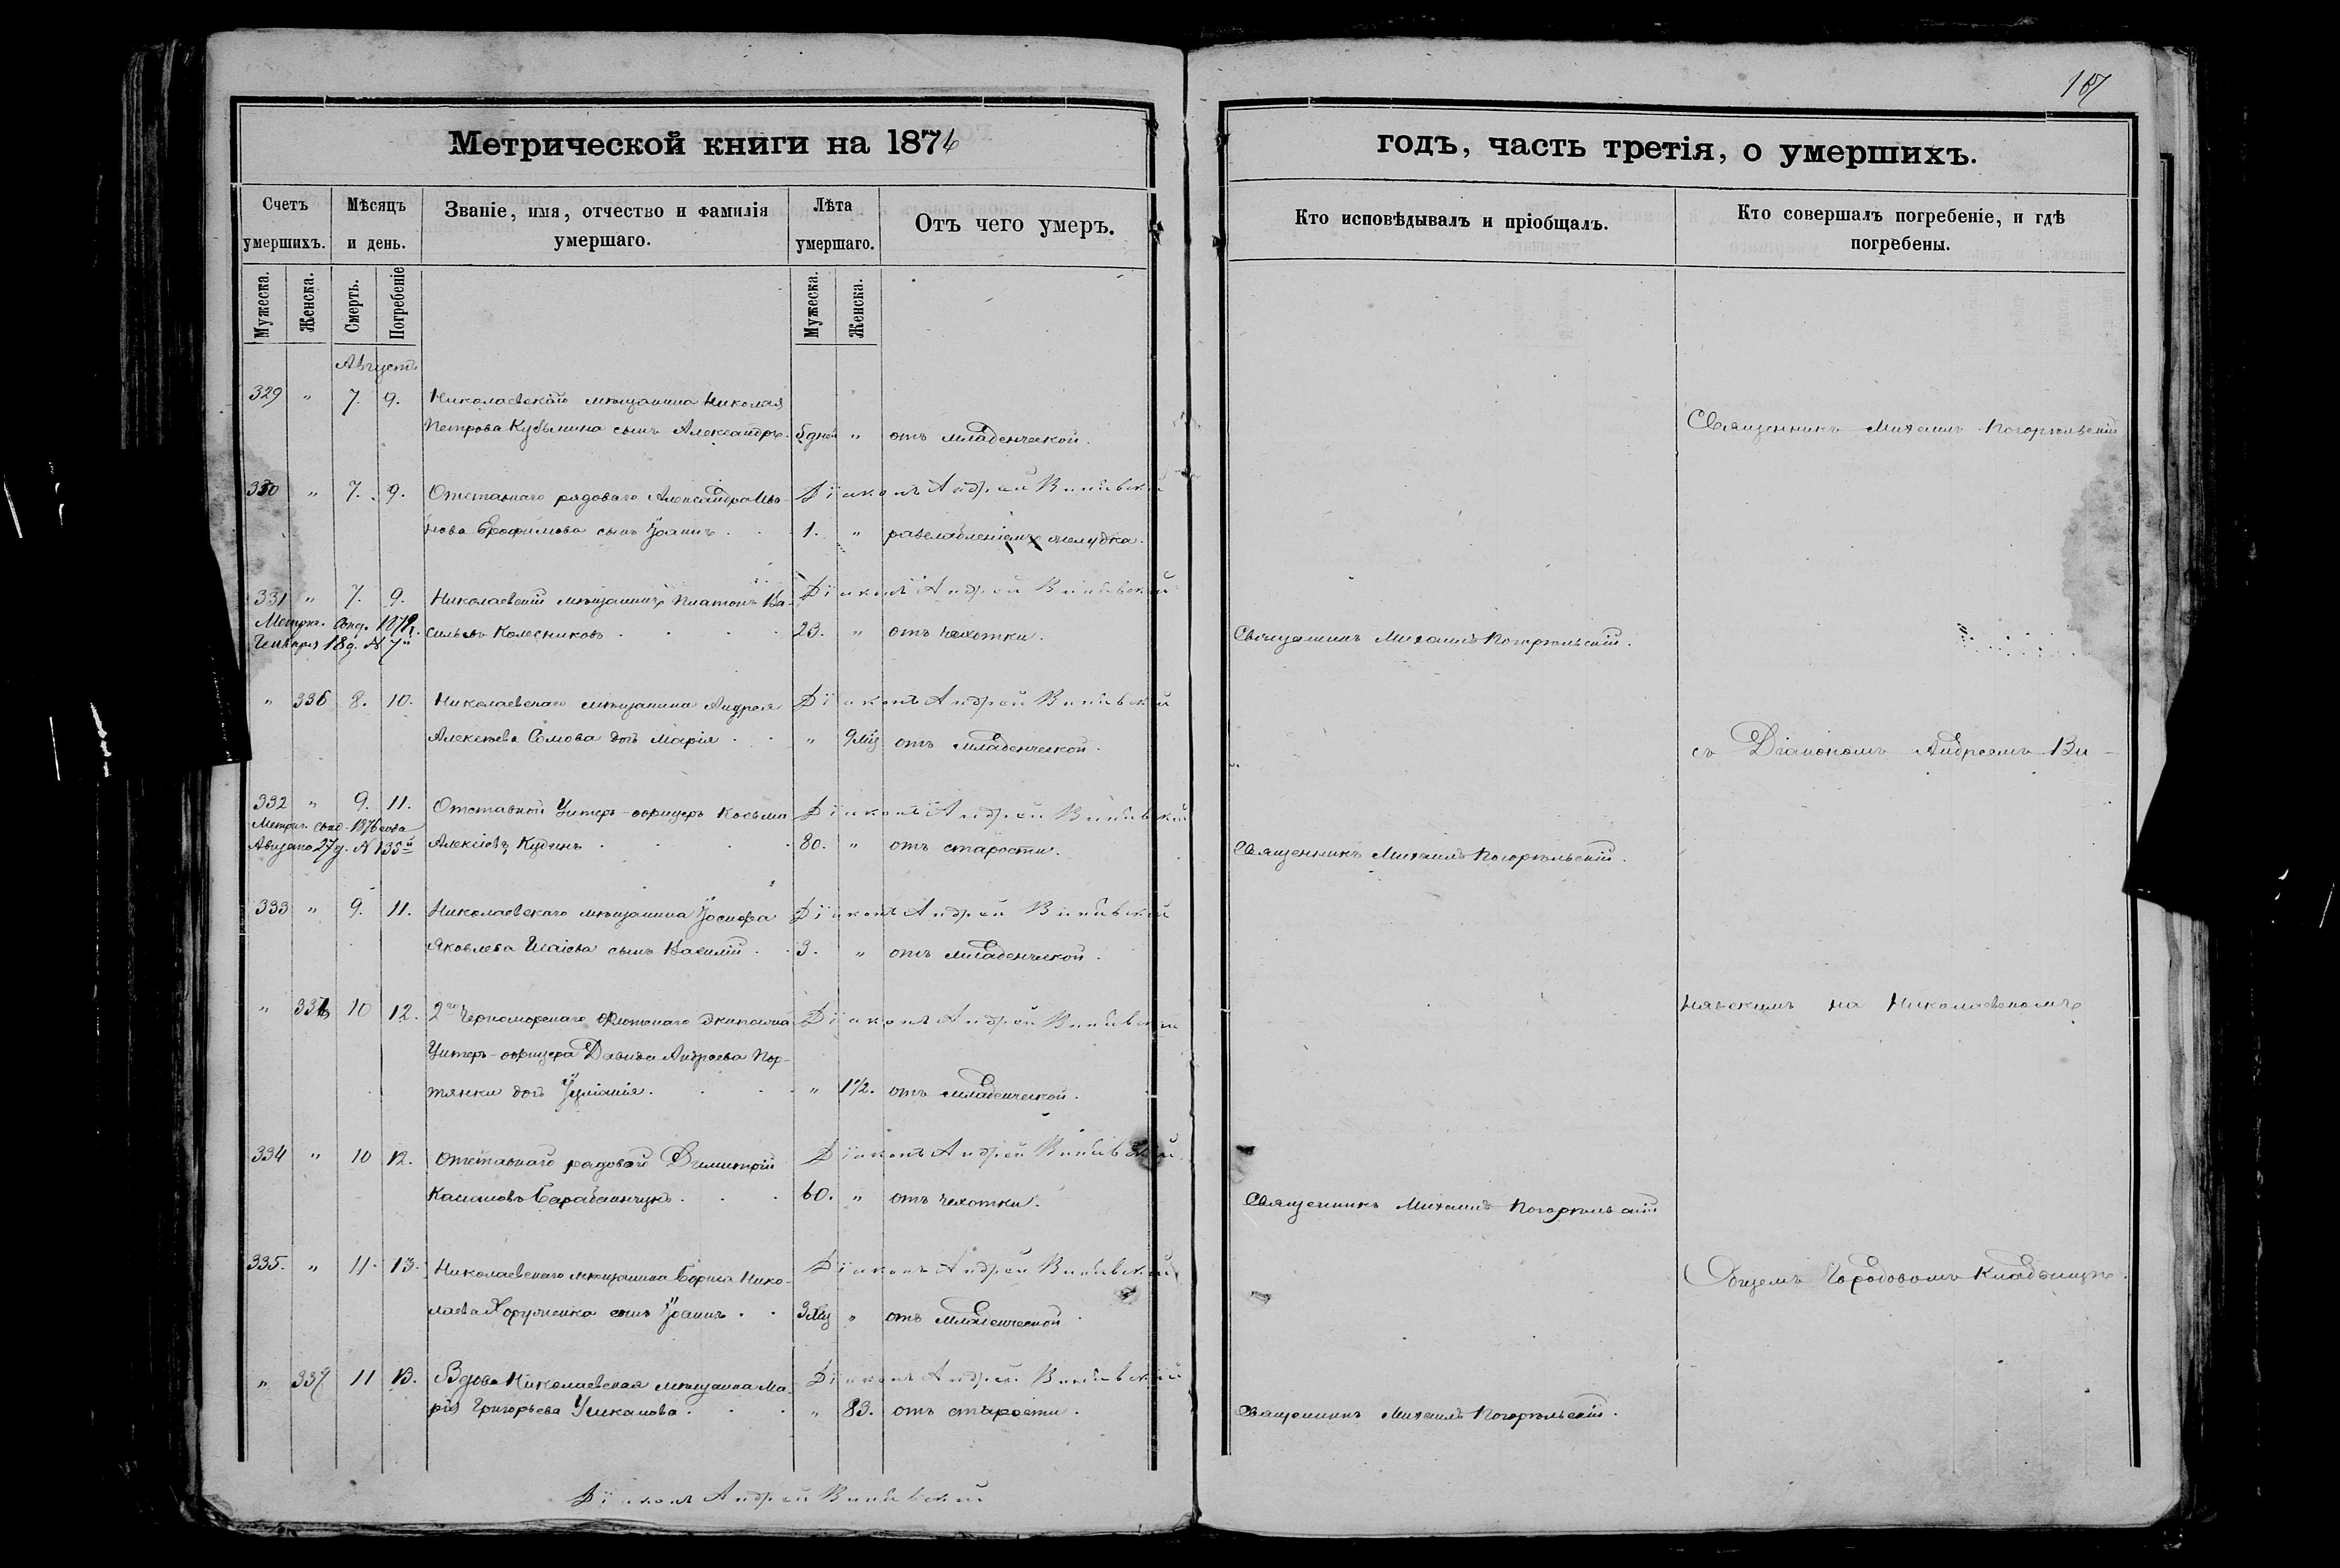 167
Метрической книги на 1876
годъ, часть третія, о умершихъ.
Счетъ умершихъ.
Мѣсяцъ и день.
Званіе, имя, отчество и фамилія умершаго.
Лѣта умершаго.
Отъ чего умеръ.
Кто исповѣдывалъ и пріобщалъ.
Кто совершалъ погребеніе, и гдѣ погребены.
Мужеска. Женска. Смерть. Погребеніе Мужеска. Женска.
Августъ
329 " 7. 9. Николаевскаго мѣщанина Николая
Петрова Кузьмина сынъ Александръ. 5 дней " отъ младенческой.
Священникъ Михаилъ Погорѣльскій
330 " 7. 9. Отставнаго рядоваго Александра Ива-
нова Ерофимова сынъ Іоаннъ . . 1. " разслабленіемъ желудка.
Діаконъ Андрей
331 " 7. 9. Николаевскій мѣщанинъ Платонъ Ва-
сильевъ Колесниковъ . . . . 23. " отъ чахотки.
Діаконъ Андрей
18д. № 7й
Священникъ Михаилъ Погорѣльскій.
" 336 8. 10. Николаевскаго мѣщанина Андрея
Алексѣева Сомова дочь Марія . . " 9 мц отъ младенческой.
Діаконъ Андрей
съ Діакономъ Андреемъ Ви-
332 " 9. 11. Отставной Унтеръ-офицеръ Косьма
Алексіевъ Кудинъ . . . . 80. " отъ старости.
Діаконъ Андрей
1876 года
Августа 27 д. № 135й
Священникъ Михаилъ Погорѣльскій.
333 " 9. 11. Николаевскаго мѣщанина Іосифа
Яковлева Исаіева сынъ Василій . . 3. " отъ младенческой.
Діаконъ Андрей
" 10 12. 2го Черноморскаго Флотскаго Экипажа
Унтеръ-офицера Давида Андреева Пор-
тянки дочь Іуліанія. . . . " 1½. отъ младенческой.
Діаконъ Андрей
на Николаевскомъ
334 " 10 12. Отставнаго рядовой Димитрій
. . . 60. " отъ чахотки.
Діаконъ Андрей
Священникъ Михаилъ Погорѣльскій
335. " 11. 13. Николаевскаго мѣщанина Бориса Нико-
лаева Хорунженка сынъ Іоаннъ . . 3 мц " отъ младенческой.
Діаконъ Андрей
Общемъ Городовомъ Кладбищѣ.
" 337 11 13. Вдова Николаевская мѣщанка Ма-
рія Григорьева Ушканова . . . " 83. отъ старости.
Діаконъ Андрей
Священникъ Михаилъ Погорѣльскій.
Діаконъ Андрей